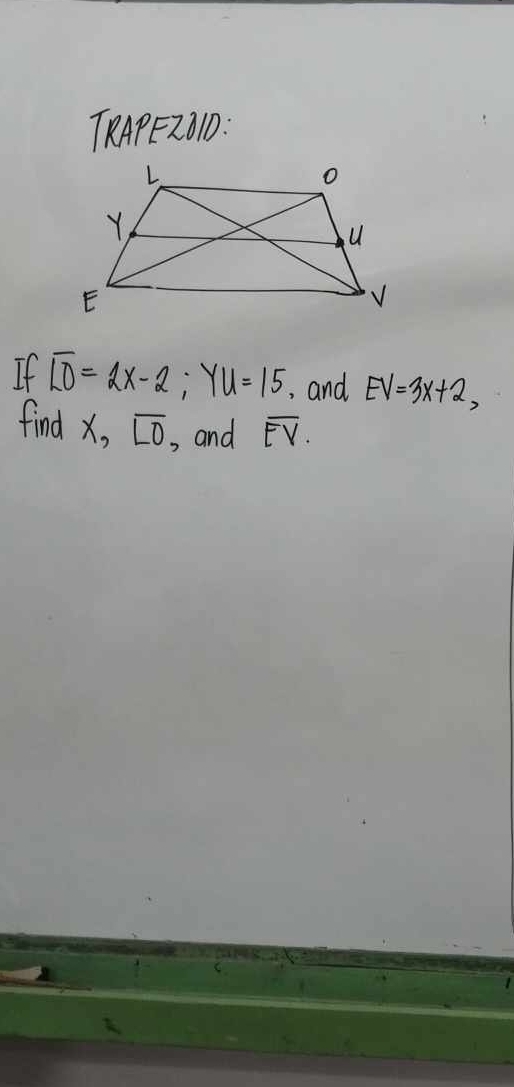 TRAPEZOID:
L O
Y U
E V
If L̅O̅ = 2x-2 ; YU = 15, and EV=3x+2,
find x, L̅O̅, and E̅V̅.